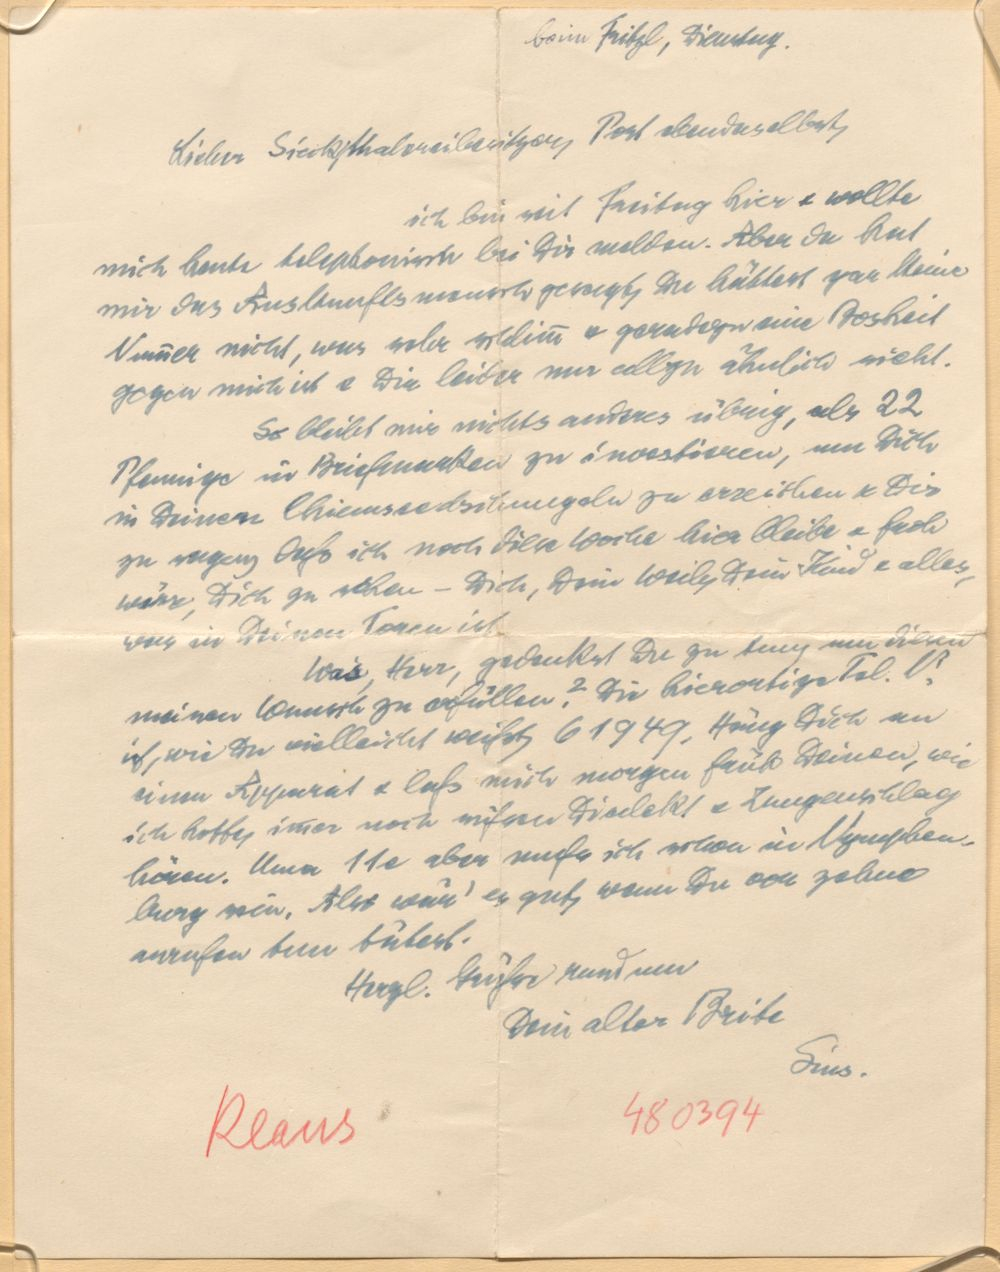 beim Fritzl, Dienstag.
Lieber Post ebendaselbst,
ich bin seit Freitag hier & wollte
mich heute telephonisch bei Dir melden. Aber da hat
mir das Auskunftsmensch gesagt, Du hättest gar keine
Nummer nicht, was sehr schlimm & geradezu eine Bosheit
gegen mich ist & Dir leider nur allzu ähnlich sieht.
So bleibt mir nichts anderes übrig, als 22
Pfennige in Briefmarken zu investieren, um Dich
in Deinen Chiemseedschungeln zu erreichen & Dir
zu sagen, daß ich noch diese Woche hier bleibe & froh
wäre, Dich zu sehen – Dich, Dein Weib, Dein Kind & alles,
was in Deinen Toren ist.
Was, Herr, gedenkst Du zu tun, um diesen
meinen Wunsch zu erfüllen? Die hierortige Tel. N.
ist, wie Du vielleicht weißt, 61949. Häng Dich an
einen Apparat & laß mich morgen früh Deinen, wie
ich hoffe, immer noch süßen Dialekt & Zungenschlag
hören. Uma 11e aber muß ich schon in Nymphen-
burg sein. Also wär' es gut, wenn Du vor zehne
anrufen tun tätest.
Herzl. Grüße rundum
Dein alter Brite
Sins.
Klaus 480394